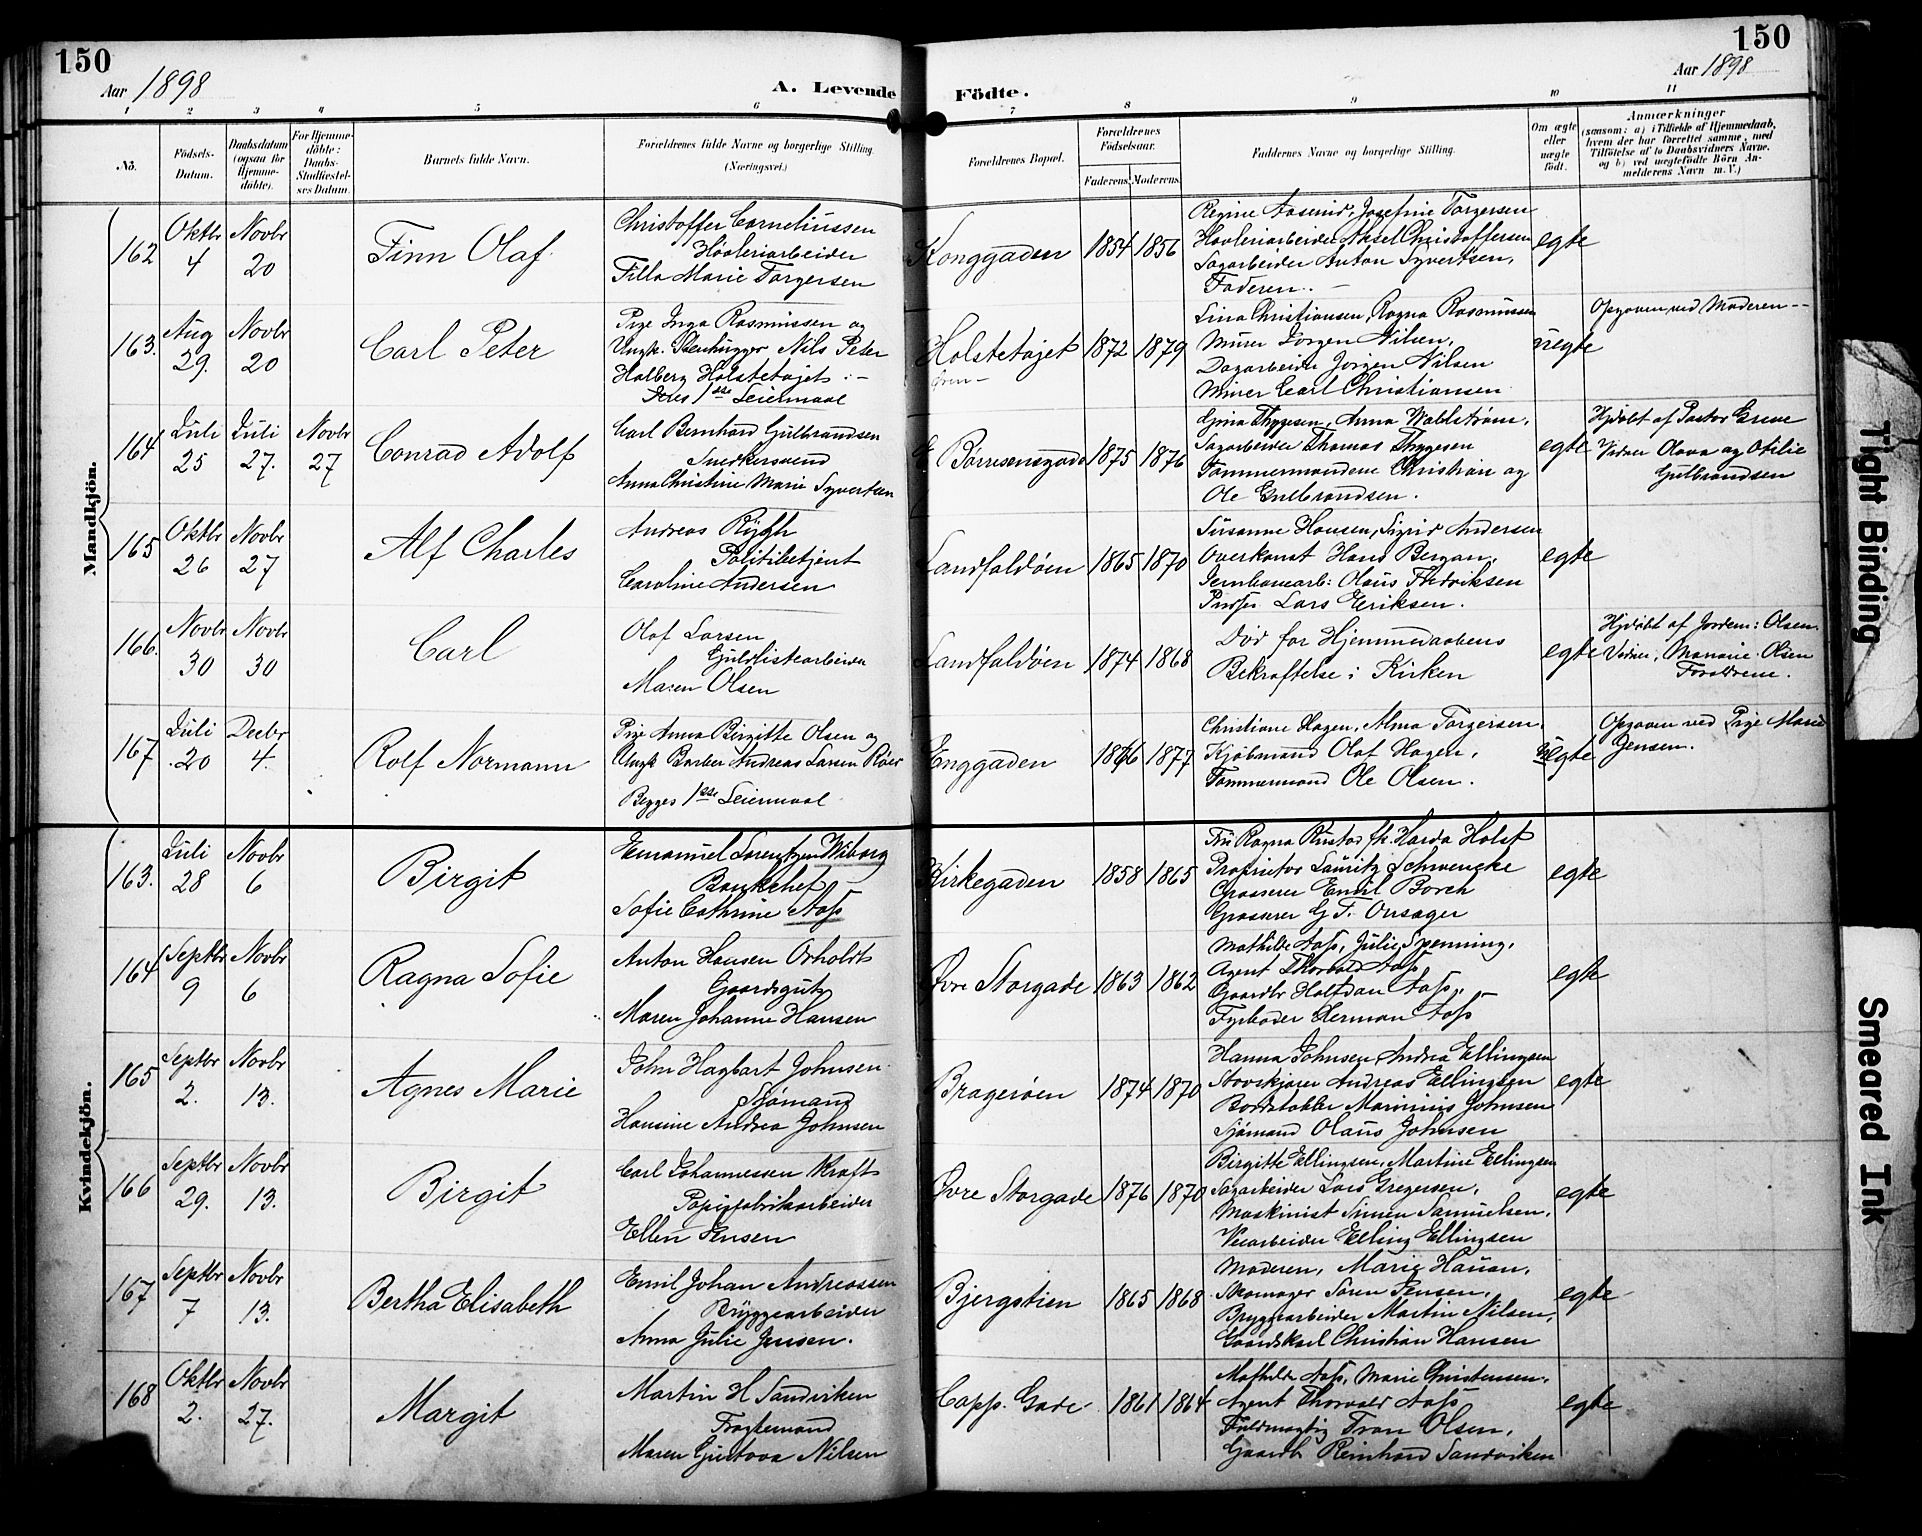 150
150
Aar 1898
A. Levende Födte.
Aar 1898
1 2 3 4 5 6 7 8 9 10 11
No.
Födsels-Datum.
Daabsdatum (ogsaa för Hjemmedöbte).
For Hjemmedöbte: Daabs-Stadfæstelses Datum.
Barnets fulde Navn.
Forældrenes fulde Navne og borgerlige Stilling. (Næringsvei.)
Forældrenes Bopæl.
Forældrenes Födselsaar.
Faderens. Moderens.
Faddernes Navne og borgerlige Stilling.
Om ægte eller uægte födt.
Anmærkninger
(saasom: a) i Tilfælde af Hjemmedaab, hvem der har forrettet samme, med Tilföielse af to Daabsvidners Navne, og b) ved uægtefödte Börn Anmelderens Navn m. V.)
Mandkjön.
162
Oktbr 4
Novbr 20
Finn Olaf
Christoffer Corneliussen
Hövleriarbeider
Tilla Marie Torgersen
Konggaden
1854 1856
Regine Aaserud, Josefine Torgersen
Hövleriarbeider Aksel Christoffersen
Sagarbeider Anton Syvertsen,
Faderen. –
egte
163.
Aug 29.
Novbr 20
Carl Peter
Pige Inga Rasmussen og
Ungk. Stenhugger Nils Peter
Halberg Holstetøjet –
Deres 1ste Leiermaal
Holstetøjet
1872 1879
Lina Christiansen, Ragna Rasmussen
Murer Jørgen Nilsen,
Dagarbeider Jörgen Nilsen
Murer Carl Christiansen
uegte
Opgaven ved Moderen –
164
Juli 25
Juli 27.
Novbr 27
Conrad Adolf
Carl Bernhard Gulbrandsen
Snedkersvend
Anna Christine Marie Syvertsen
Börresensgade
1875 1876
Gina Thygesen, Anna Wahlstrøm,
Sagarbeider Thomas Thygesen
Tømmermændene Christian og
Ole Gulbrandsen.
egte
Hjdøbt af Pastor Greve
Vidner Olava og Otilie
Gulbrandsen
165
Oktbr 26
Novbr 27
Alf Charles
Andreas Rygh
Politibetjent
Caroline Andersen
Landfaldöen
1865 1870
Susanne Hansen, Sigrid Andersen
Overkonst Hans Bergan,
Jernbanearb: Olaus Fredriksen
Lars Eriksen.
egte
166.
Novbr 30
Novbr 30
Carl
Olaf Larsen
Guldlistearbeider
Maren Olsen
Landfaldöen
1874 1868
Död før Hjemmedaabens
Bekræftelse i Kirken
egte
Hjdöbt af Jordem: Olsen.
Olsen
Forældrene.
167
Juli 20
Decbr 4.
Rolf Normann
Pige Anna Birgitte Olsen og
Ungk Barber Andreas Larsen
Begges 1ste Leiermaal
Enggaden
1876 1877
Christiane Hagen, Alma Torgersen.
Kjöbmand Olaf Hagen,
Tømmermand Ole Olsen.
uegte
Opgaven ved Pige Marie
Jensen.
Kvindekjön.
163.
Juli 28
Novbr 6
Birgit
Emanuel Lorentzen Wiborg
Bankchef
Sofie Cathrine Aass
Kirkegaden
1858 1865
Fru Ragna Rustad frk. Harda Holst
Proprietær Lauritz Schwencke
Grosserer Emil Borch
Grosserer G F. Onsager
egte
164
Septbr 9
Novbr 6
Ragna Sofie
Anton Hansen Orholdt
Gaardsgut
Maren Johanne Hansen
Øvre Storgade
1863 1862
Mathilde Aass, Julie Spenning,
Agent Thorvald Aass
Gaardbr Halfdan Aass,
Fyrbøder Herman Aass
egte
165
Septbr 2.
Novbr 13.
Agnes Marie
John Hagbart Johnsen
Sjömand
Hansine Andrea Johnsen
Bragerøen
1874 1870
Hanna Johnsen, Andrea Ellingsen
Stovskjører Andreas Ellingsen
Bordstabler Marinius Johnsen
Sjömand Olaus Johnsen
egte
166
Septbr 29.
Novbr 13.
Birgit
Carl Johannessen Kraft
Papirfabrikarbeider
Ellen Jensen
Øvre Storgade
1876 1870
Birgitte Ellingsen, Martine Ellingsen
Sagarbeider Lars Gregersen,
Maskinist Simen Samuelsen,
Veiarbeider Elling Ellingsen
egte
167
Septbr 7
Novbr 13.
Bertha Elisabeth
Emil Johan Andreassen
Bryggearbeider
Anna Julie Jensen.
Bjergstien
1865 1868
Moderen, Marie Hauan,
Skomager Søren Jensen,
Bryggearbeider Martin Nilsen,
Gaardskarl Christian Hansen
egte
168
Oktbr 2.
Novbr 27.
Margit
Martin H Sandviken
Fragtemand
Maren Gustava Nilsen
Capp. Gade
1861 1864
Mathilde Aass, Marie Christensen,
Agent Thorvald Aass
Fuldmægtig Olsen,
Gaardbr Reinhard Sandviken
egte
Tight Binding
Smeared Ink